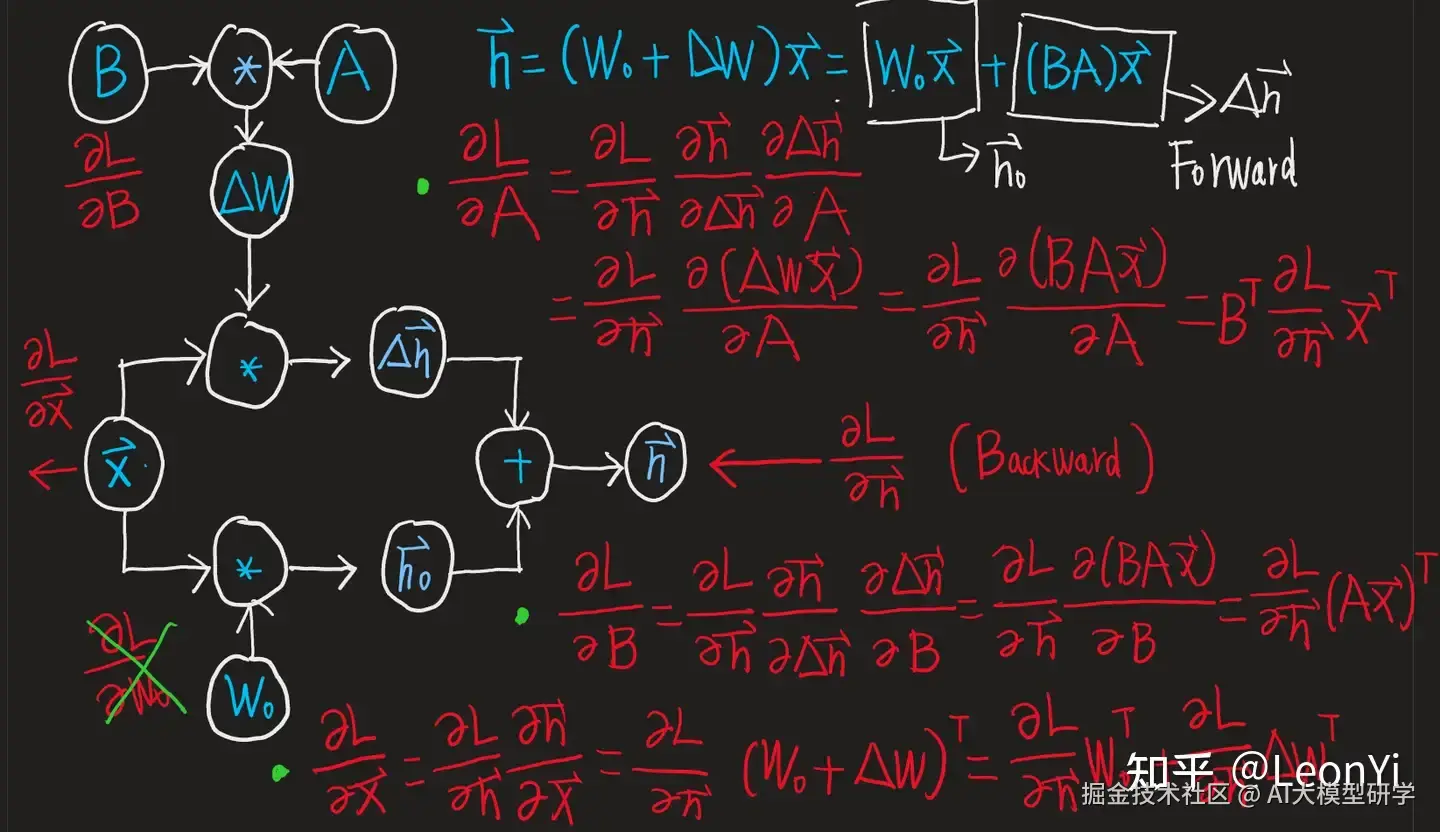 B * A
h⃗ = (W₀ + ΔW)x⃗ = W₀x⃗ + (BA)x⃗
Δh⃗
h⃗₀
Forward
∂L/∂B
ΔW
∂L/∂A = ∂L/∂h⃗ ∂h⃗/∂Δh⃗ ∂Δh⃗/∂A
= ∂L/∂h⃗ ∂(ΔWx⃗)/∂A = ∂L/∂h⃗ ∂(BAx⃗)/∂A = Bᵀ ∂L/∂h⃗ x⃗ᵀ
∂L/∂x⃗
* Δh⃗
x⃗ + h⃗
∂L/∂h⃗ (Backward)
* h⃗₀
∂L/∂B = ∂L/∂h⃗ ∂h⃗/∂Δh⃗ ∂Δh⃗/∂B = ∂L/∂h⃗ ∂(BAx⃗)/∂B = ∂L/∂h⃗ (Ax⃗)ᵀ
∂L/∂W₀
W₀
∂L/∂x⃗ = ∂L/∂h⃗ ∂h⃗/∂x⃗ = ∂L/∂h⃗ (W₀ + ΔW)ᵀ = ∂L/∂h⃗ W₀ᵀ + ∂L/∂h⃗ ΔWᵀ
知乎 @LeonYi
掘金技术社区 @ AI大模型研学